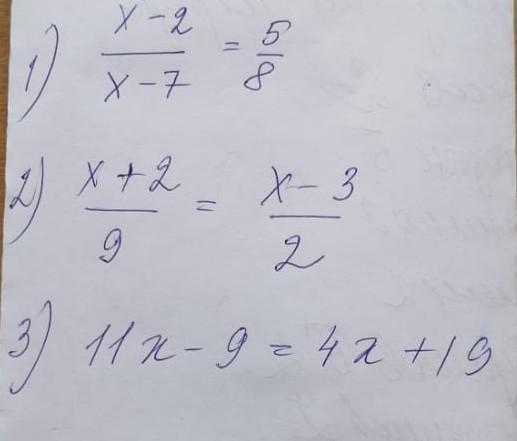 1) (x-2)/(x-7) = 5/8
2) (x+2)/9 = (x-3)/2
3) 11x-9=4x+19